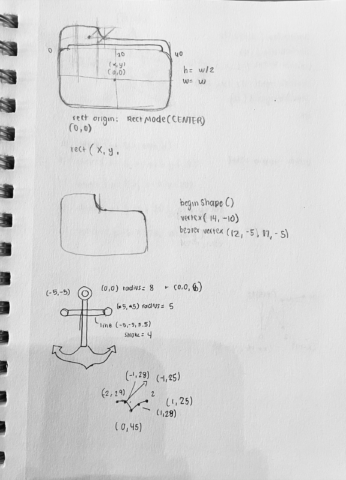 0
20
40
(x,y)
(0,0)
h= w/2
w= w
rect origin: RectMode(CENTER)
(0,0)
rect ( x, y,
begin shape ()
vertex( 14, -10)
bezier vertex (12, -5, 17, -5)
(-5,-5)
(0,0) radius = 8
radius = 5
line
stroke = 4
(-1,28)
(-1,25)
(-2, 29)
2
(1, 25)
(1,28)
(0, 45)